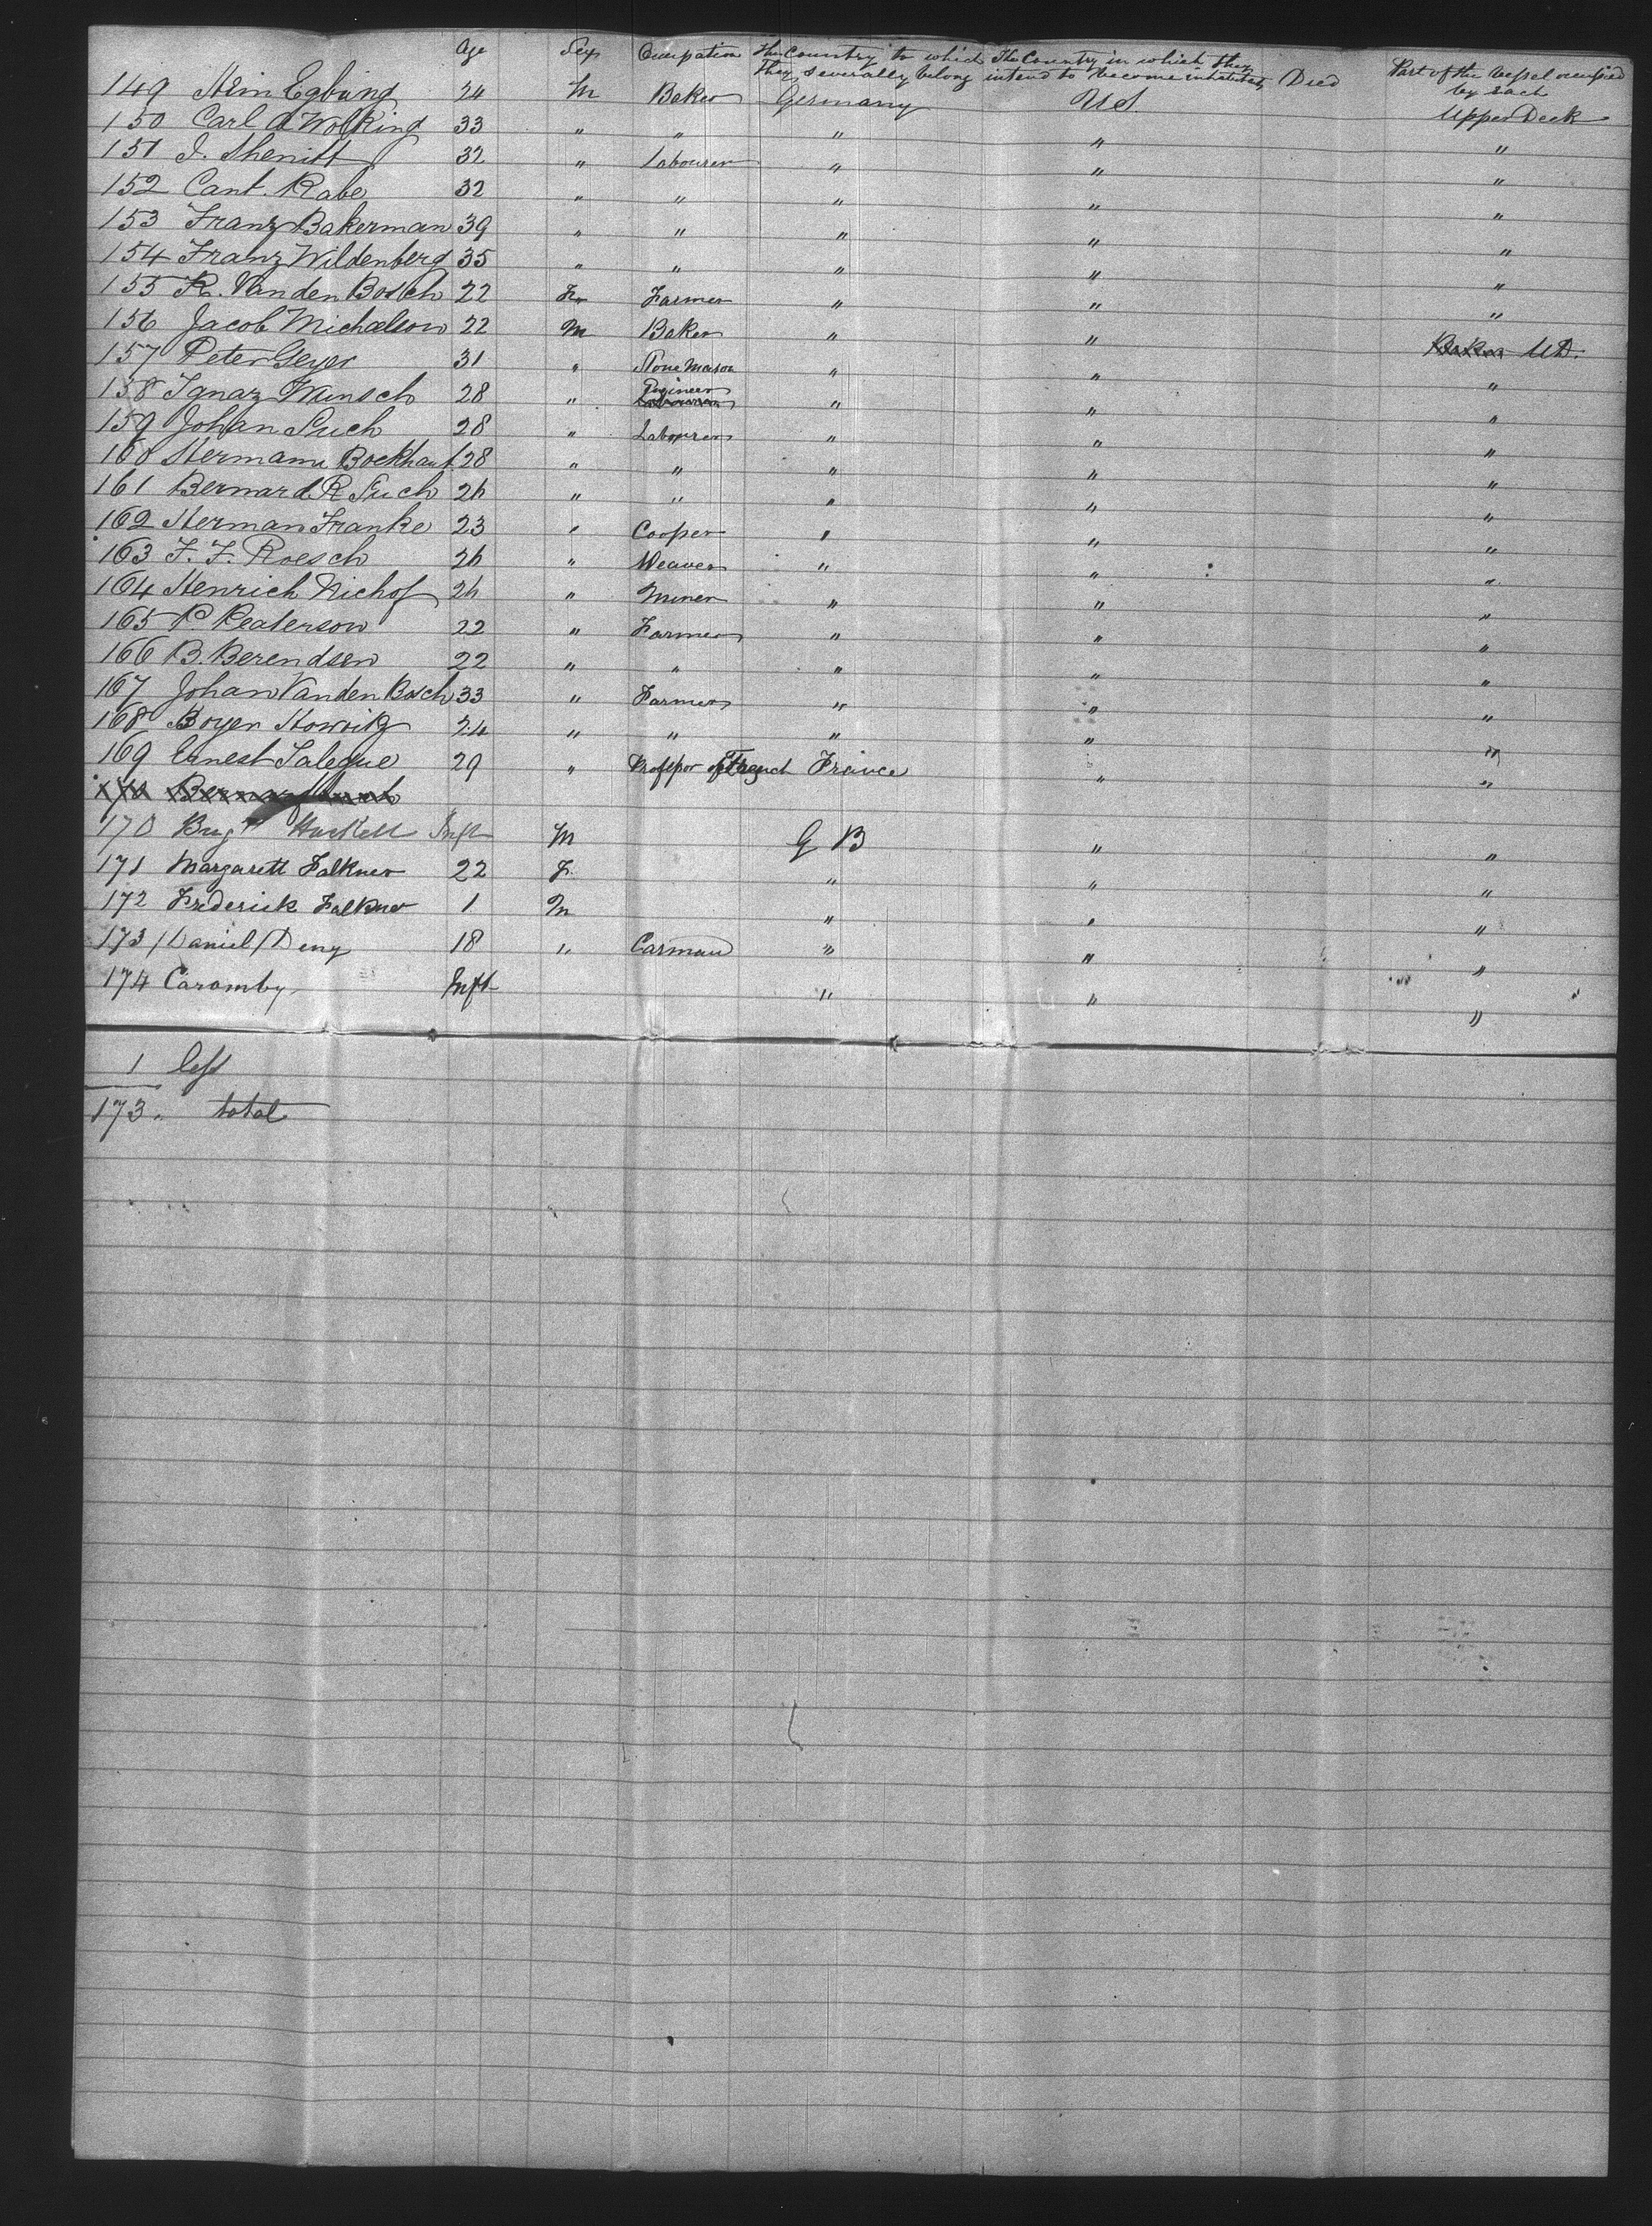 Age Sex Occupation The Country to which they severally belong The Country in which they intend to become inhabitants Died Part of the Vessel occupied by each
149 Egbring 24 M Baker Germany U.S. Upper Deck
150 Carl Wolking 33 " " " " "
151 J. 32 " Labourer " " "
152 Cant. Rabe 32 " " " " "
153 Franz Bakerman 39 " " " " "
154 Franz Wildenberg 35 " " " " "
155 R. Van den Bosch 22 F. Farmer " " "
156 Jacob Michaelson 22 M Baker " " U.D.
157 Peter Geyer 31 " Stone Mason " " "
158 Ignaz Wunsch 28 " Engineer " " "
159 Johan Such 28 " Labourer " " "
160 Hermann 28 " " " " "
161 Bernard R Such 26 " " " " "
162 Herman Franke 23 " Cooper " " "
163 F. F. Roesch 26 " Weaver " " "
164 Henrich Nichof 26 " Miner " " "
165 P. Peaterson 22 " Farmer " " "
166 B. Berendsen 22 " " " " "
167 Johan Van den Bosch 33 " Farmer " " "
168 Boyer 24 " " " " "
169 Ernest Saleque 29 " Professor of French France " "
170 Haskell Inft M G B " "
171 Margarett Falkner 22 F. " " "
172 Frederick Falkner 1 M " " "
173 Daniel Deny 18 " Carman " " "
174 Caromby Inft " " "
1 less
173. total